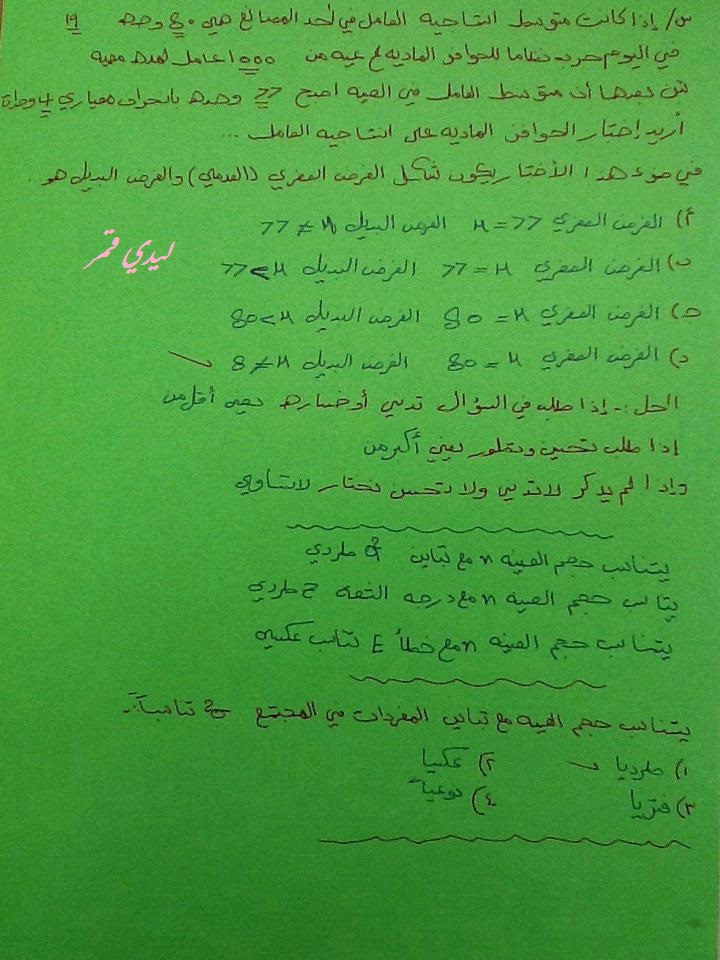 س/ إذا كانت متوسط انتاجيه العامل في أحد المصانع هي 80 وحده
19
في اليوم جرب نظاما للحوافز الماديه على عينه من 1000 عامل لمده معينه
تبين بعدها أن متوسط العامل في العينه اصبح 77 وحده بانحراف معياري 4 وحدات
أريد إختبار الحوافز الماديه على انتاجيه العامل ...
في ضوء هذا الأختبار يكون شكل الفرض الصفري (العدمي) والفرض البديل هو .
أ) الفرض الصفري 77 = μ الفرض البديل 77 ≠ μ
ب) الفرض الصفري 77 = μ الفرض البديل 77 < μ
ليدي قمر
ج) الفرض الصفري 80 = μ الفرض البديل 80 < μ
د) الفرض الصفري 80 = μ الفرض البديل 8 ≠ μ
الحل :- إذا طلب في السؤال تدني أو خساره يعني أقل من
إذا طلب تحسن وتطور يعني أكبر من
وإذا لم يذكر لا تدني ولا تحسن نختار لا تساوي
يتناسب حجم العينه n مع تباين σ² طردي
يتناسب حجم العينه n مع درجه الثقه Z طردي
يتناسب حجم العينه n مع خطأ E تناسب عكسي
يتناسب حجم العينه مع تباين المفردات في المجتمع σ² تناسبآ:-
1) طرديا 2) عكسيا
3) فتريا 4) نوعيا